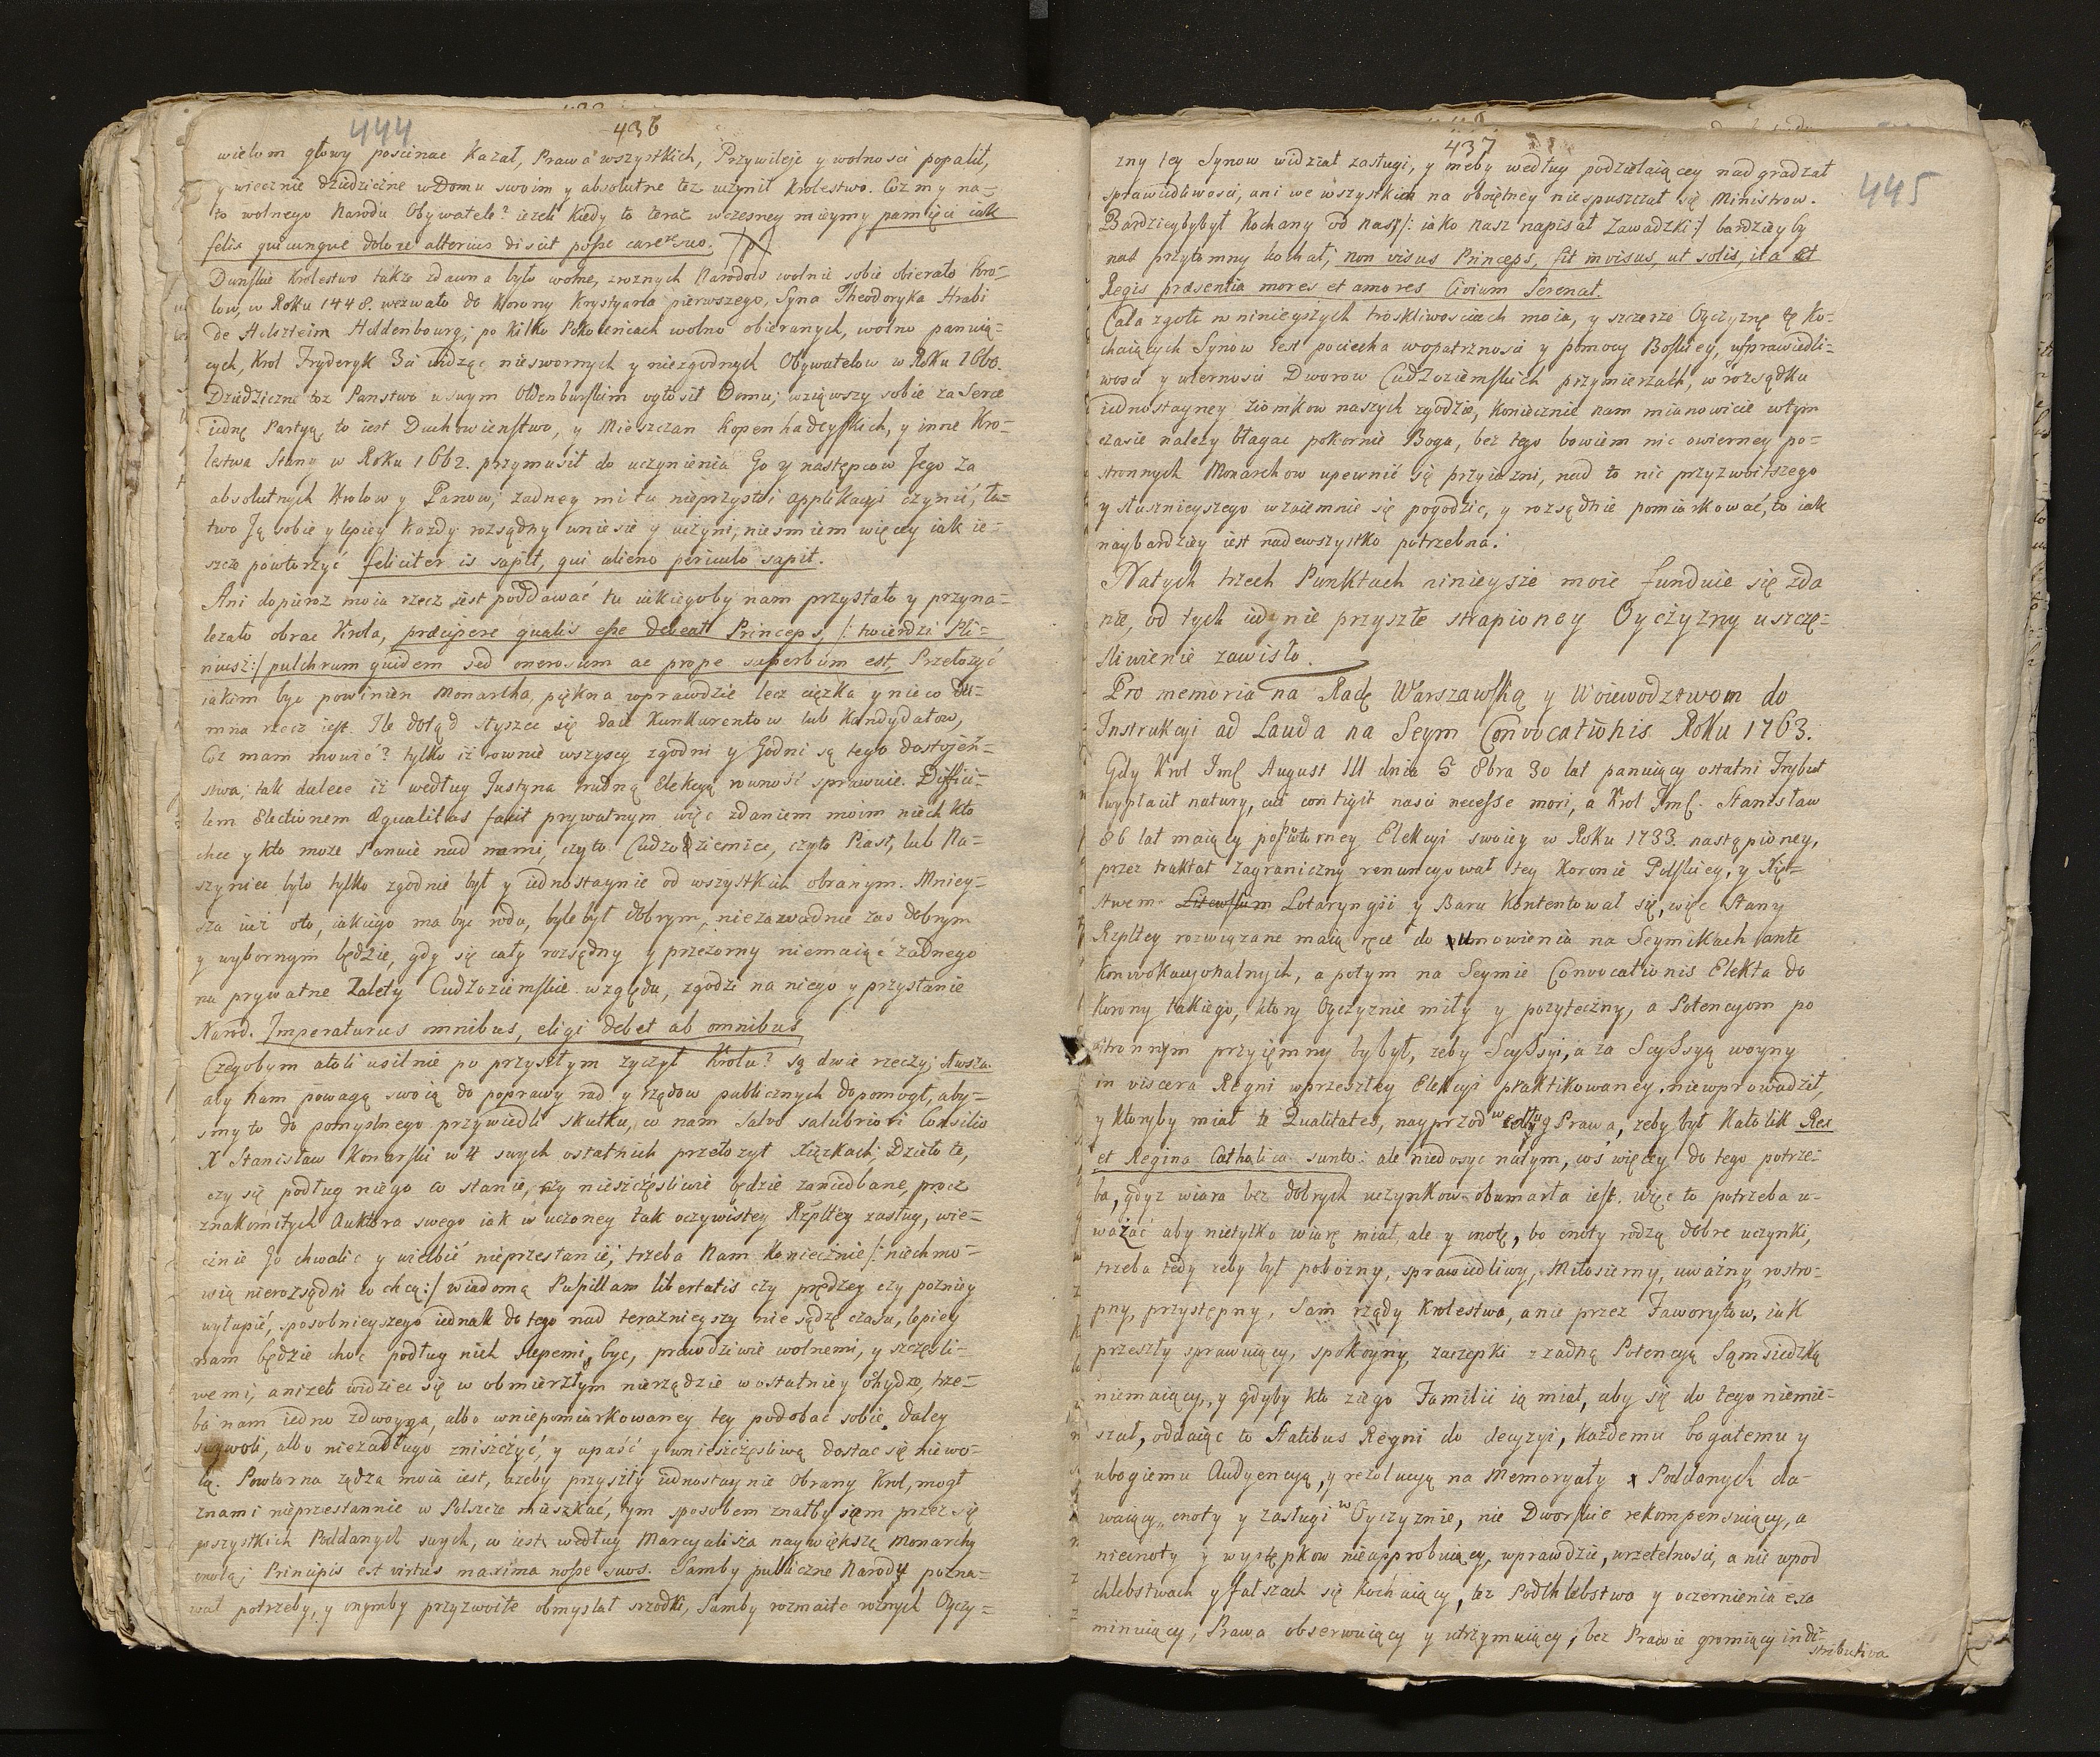 444
436
wielom głowy poscinac kazał, Prawa wszystkich, Przywileje y wolnosci popalił,
y wiecznie dziedziczne w Domu swoim y absolutne toz uczynił Krolestwo. Coz my na-
to wolnego Narodu Obywatele? iezeli kiedy to teraz wczesney mieymy pamięci iak
felix quicunque dolore alterius discit posse carere suo.
Dunskie Krolestwo także zdawna było wolne, zroznych Narodow wolnie sobie obierało Kro-
low, w Roku 1448. wezwało do Korony Krystyana pierwszego, Syna Theodoryka Hrabi
de Holsztein Holdenbourg; po kilku Pokoleniach wolno obieranych, wolno panuią-
cych, Krol Fryderyk 3ci widząc nieswornych y niezgodnych Obywatelow w Roku 1660.
Dziedziczne toz Panstwo w swym Oldenburskim ogłosił Domu; wziąwszy sobie za Serce
iednę Partyą, to iest Duchowienstwo, y Mieszczan Kopenhadzskich, y inne Kro-
lestwa Stany w Roku 1662. przymusił do uczynienia Go y następcow Jego za
absolutnych Krolow y Panow; zadney mi tu nieprzystoi applikacyi czynić, ła-
two Ją sobie y lepiey kazdy rozsądny wniesie y uczyni; niesmiem więcey iak ie-
szcze powtorzyć feliciter is sapit, qui alieno periculo sapit.
Ani dopieroz moia rzecz iest poddawać tu iakiegoby nam przystało y przyna-
lezało obrac Krola, præcipere qualis esse debeat Princeps, /: twierdzi Pli-
niusz :/ pulchrum quidem sed onerosum ac prope superbum est, Przełozyć
iakim byc powinien Monarcha, piękna wprawdzie lecz cięzka y nieco du-
mna rzecz iest. Ile dotąd słyszec się daie Kunkurentow lub Kandydatow,
Coz mam mowić? tylko iz rownie wszyscy zgodni y Godni są tego dostojeń-
stwa; tak dalece iz według Justyna trudną Elekcyą rowność sprawuie. Diffici-
lem Electionem Æqualitas facit prywatnym więc zdaniem moim niech kto
chce y kto moze Panuie nad nami, czyto Cudzoziemiec, czyto Piast, lub Na-
szyniec było tylko zgodnie był y iednostaynie od wszystkich obranym. Mniey-
sza iuż oto, iakiego ma byc rodu, byle był dobrym, niezawadnie zas dobrym
y wybornym będzie, gdy się cały rozsądny y przezorny niemaiąc żadnego
na prywatne Zalety Cudzoziemskie względu, zgodzi na niego y przystanie
Narod. Imperaturus omnibus, eligi debet ab omnibus
Czegobym atoli usilnie po przyszłym zyczył Krolu? są dwie rzeczy; Awsza.
aby nam powagą swoią do poprawy rad y rządow publicznych dopomogł, aby-
smy to do pomyslnego przywiedli skutku, co nam Salvo salubriori Consilio
X Stanisław Konarski w 4 swych ostatnich przełozył Xiązkach; Dzieło te,
czy się podług niego co stanie, czy nieszczęsliwie będzie zaniedbane, procz
znakomitych Auktora swego iak w uczoney tak oczywistey Rzpltey zasług, wie-
cznie Go chwalic y wielbić nieprzestanie; trzeba nam koniecznie /: niech mo-
wią nierozsądni co chcą :/ wiadomą Pupillam libertatis czy prędzey czy pozniey
wyłupić, sposobnieyszego iednak do tego nad teraznieyszy nie sądzę czasu, lepiey
nam będzie choc podług nich slepemi byc, prawdziwie wolnemi, y szczęsli-
wemi, anizeli widziec się w obmierzłym nierządzie w ostatniey ohydzie, trze-
ba nam iedno zdwoyga, albo w niepomiarkowaney tey podobac sobie daley
swywoli, albo niezadługo zniszczyć, y upaść y w nieszczęsliwą dostac się niewo-
lą. Powtorna rządza moia iest, azeby przyszły iednostaynie Obrany Krol, mogł
znami nieprzestannie w Polszcze mieszkać, tym sposobem znałby sam przez się
wszystkich Poddanych swych, co iest według Marcyalisza naywiększą Monarchy
cnotą; Principis est virtus maxima nosse suos. Samby publiczne Narody pozna-
wał potrzeby, y onymby przyzwoite obmyslał srzodki, Samby rozmaite roznych Oyczy-
437
445
zny tey Synow widział zasługi, y nieby według podzielaiącey nadgradzał
sprawiedliwosci, ani we wszystkich na obrętney niespuszczał się Ministrow.
Bardzieybybył kochany od nas /: iako nasz napisał Zawadzki :/ bardzieyby
nas przytomny kochał; non visus Princeps, fit invisus, ut solis, ita et
Regis præsentia mores et amores Civium Serenat.
Cała zgoła w ninieyszych troskliwosciach moia, y szczerze Oyczyznę tę ko-
chaiących Synow iest pociecha w opatrznosci y pomocy Boskiey, w sprawiedli-
wosci y wiernosci Dworow Cudzoziemskich przymierzach, w rozsądku
iednostayney ziomkow naszych zgodzie, koniecznie nam mianowicie wtym
czasie nalezy błagac pokornie Boga, bez tego bowiem nic owierney po-
stronnych Monarchow upewnić się przyiazni, nad to nic przyzwoitszego
y słusznieyszego wzaiemnie się pogodzic, y rozsądnie pomiarkować, to iak
naybardziey iest nadewszystko potrzebna.
Natych trzech Punktach ninieysze moie funduie się zda
nie, od tych iedynie przyszłe strapioney Oyczyzny uszczę-
śliwienie zawisło.
Pro memoria na Radę Warszawską y Woiewodztwom do
Instrukcyi ad Lauda na Seym Convocationis Roku 1763.
Gdy Krol Jmć August III dnia 5 8bra 30 lat panuiący ostatni Trybut
wypłacił natury, cui contigit nasci necesse mori, a Krol Jmć. Stanisław
86 lat maiący powtorney Elekcyi swoiey w Roku 1733. nastąpioney,
przez traktat Zagraniczny renuncyował tey Koronie Polskiey, y Xię-
stwem Litewskim Lotaryngii y Baru kontentował się, więc Stany
Rzpltey rozwiązane maią ręce do umowienia na Seymikach ante
Konwokacyonalnych, a potym na Seymie Convocationis Elekta do
Korony takiego, ktory Oyczyznie miły y pozyteczny, a Potencyom po
stronnym przyięmny bybył, zeby Scyssyi, a za Scyssyą woyny
in viscera Regni wprzeszłey Elekcyi praktikowaney, niewprowadził,
y ktoryby miał te Qualitates, nayprzod według Prawa, zeby był Katolik Rex
et Regina Catholica sunto: ale niedosyc natym, coś więcey do tego potrze-
ba, gdyz wiara bez dobrych uczynkow obumarła iest. więc to potrzeba u-
ważać aby nietylko wiarę miał, ale y cnotę, bo cnoty rodzą dobre uczynki,
trzeba tedy zeby był pobozny, sprawiedliwy, Miłosierny, uważny, rostro-
pny, przystępny, Sam rządy Krolestwa, a nie przez Faworytow, iak
przeszły sprawuiący, spokoyny, zaczepki zzadną Potencyą Sąmsiedzką
niemaiący, y gdyby kto ziego Familii ią miał, aby się do tego niemie-
szał, oddaiąc to Statibus Regni do decyzyi, każdemu bogatemu y
ubogiemu Audyencyą, y rezolucyą na Memoryały Poddanych da-
waiący, cnoty y zasługi w Oyczyznie, nie Dworskie rekompensuiący, a
niecnoty y występkow nieapprobuiący, wprawdzie, wrzetelnosci, a nie wpod
chlebstwach y fałszach się kochaiący, tez Podchlebstwa y oczernienia exa
minuiący, Prawa obserwuiący y utrzymuiący; bez Prawie gromiący in di-
stributiva